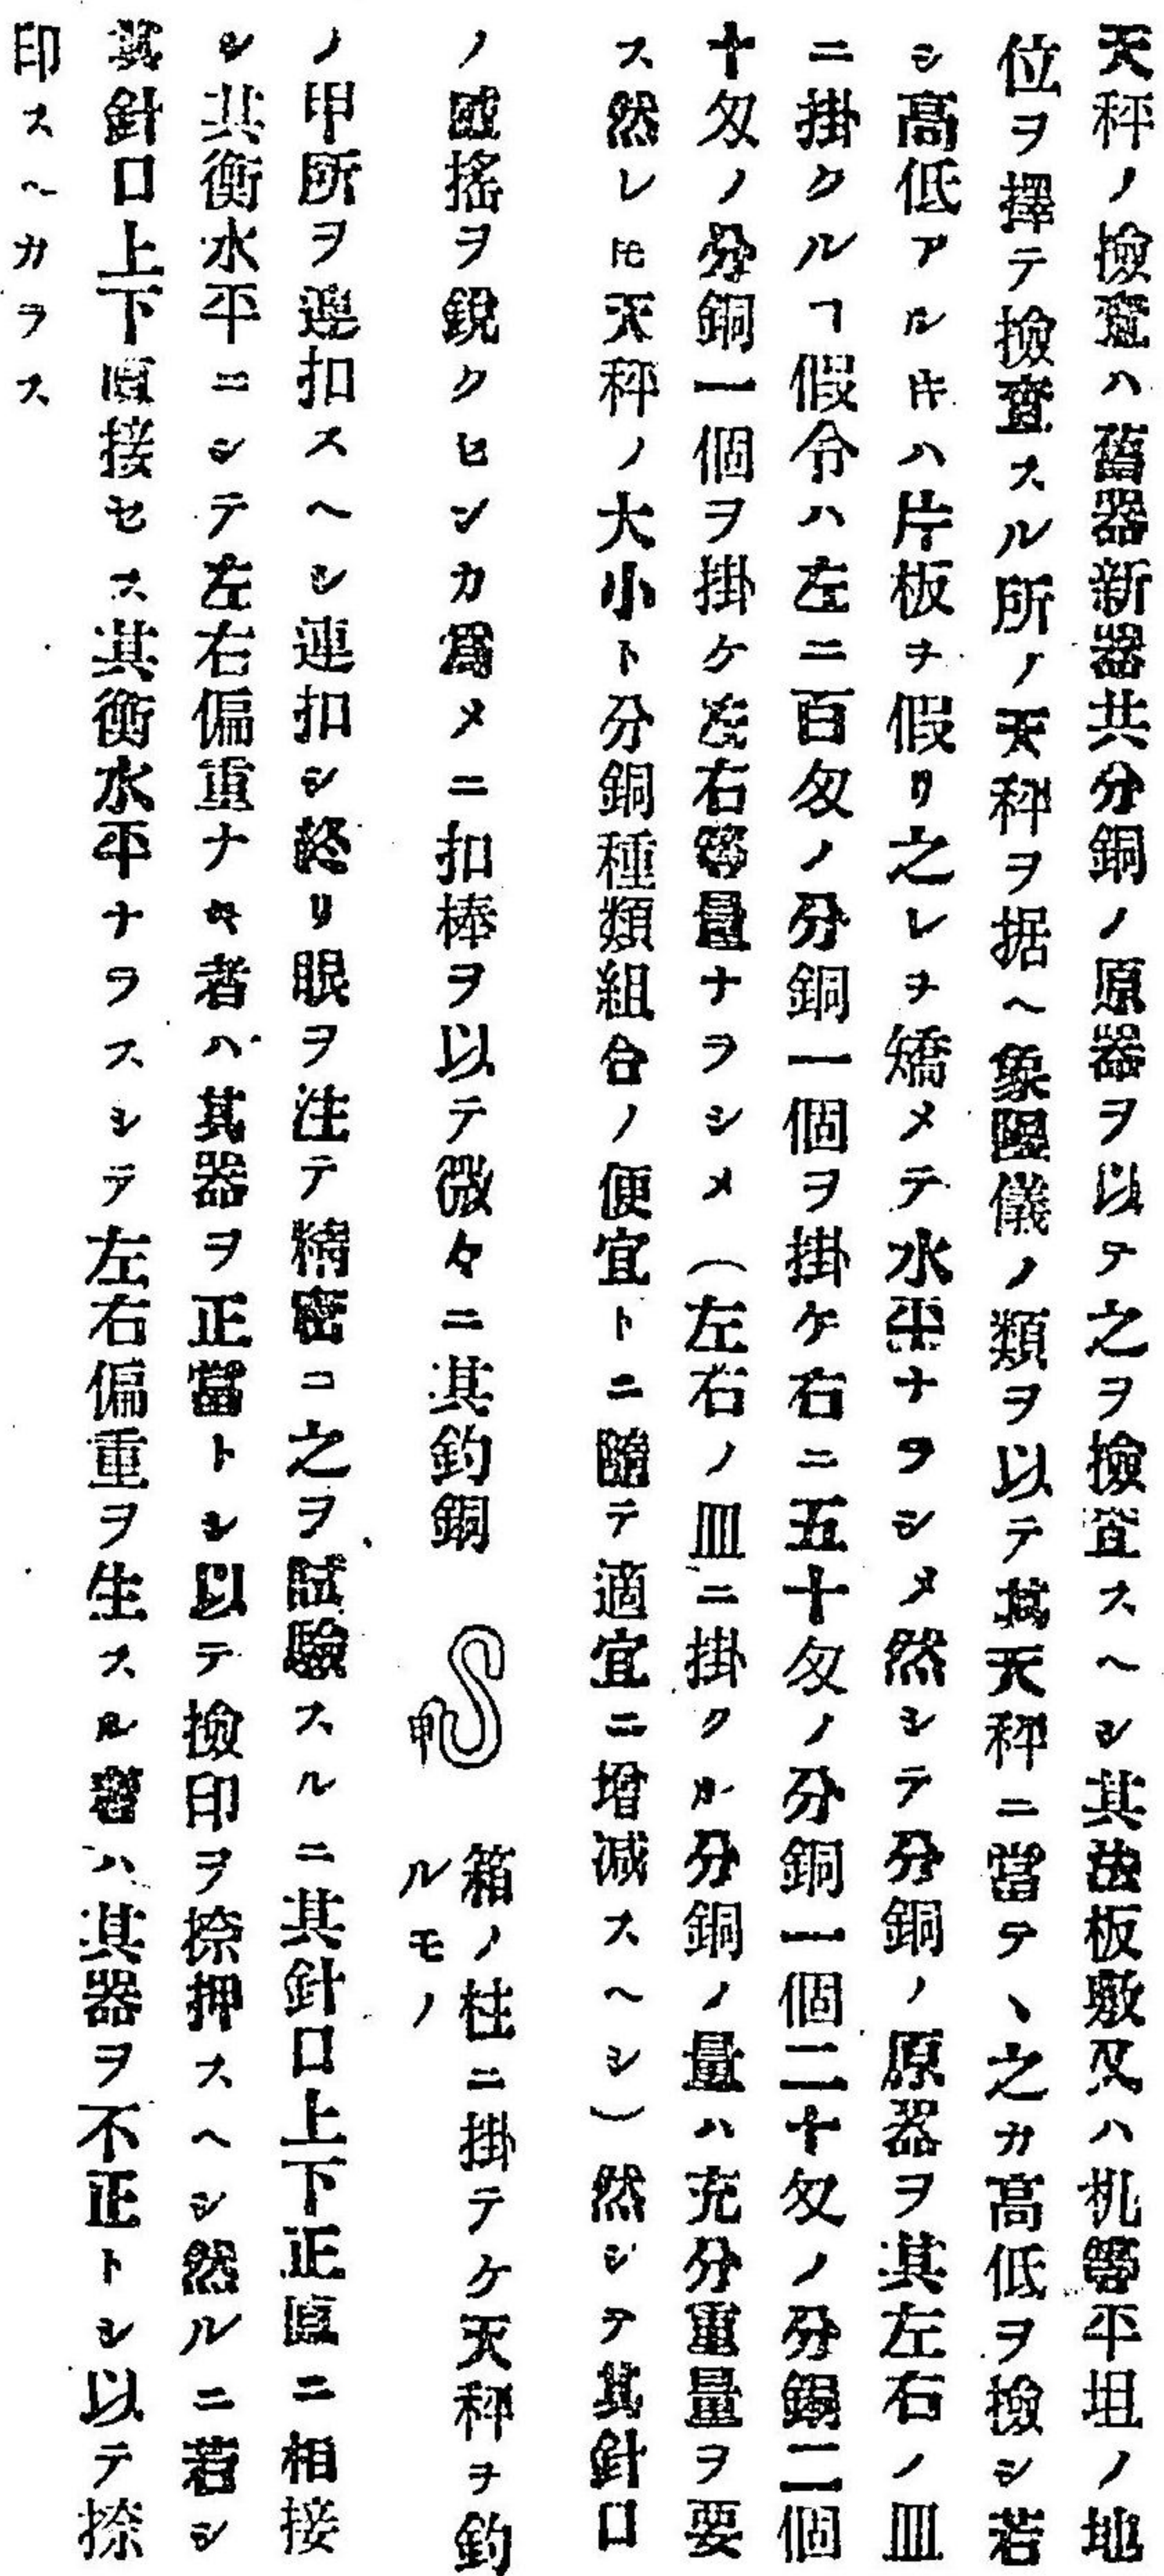 天秤ノ撿査ハ舊器新器共分銅ノ原器ヲ以テ之ヲ撿査スヘシ其法板敷又ハ机等平坦ノ地
位ヲ擇テ撿査スル所ノ天秤ヲ据ヘ象限儀ノ類ヲ以テ其天秤ニ當テヽ之カ高低ヲ撿シ若
シ高低アルキハ片板ヲ假リ之レヲ矯メテ水平ナラシメ然シテ分銅ノ原器ヲ其左右ノ皿
ニ掛クルヿ假令ハ左ニ百匁ノ分銅一個ヲ掛ケ右ニ五十匁ノ分銅一個二十匁ノ分銅二個
十匁ノ分銅一個ヲ掛ケ左右等量ナラシメ(左右ノ皿ニ掛クル分銅ノ量ハ充分重量ヲ要
ス然レ𪜈天秤ノ大小ト分銅種類組合ノ便宜トニ隨テ適宜ニ增减スヘシ)然シテ其針口
ノ動搖ヲ銳クセンカ爲メニ扣棒ヲ以テ微々ニ其釣銅
甲
箱ノ柱ニ掛テケ天秤ヲ釣
ルモノ
ノ甲所ヲ連扣スヘシ連扣シ終リ眼ヲ注テ精密ニ之ヲ試驗スルニ其針口上下正直ニ相接
シ其衡水平ニシテ左右偏重ナキ者ハ其器ヲ正當トシ以テ撿印ヲ捺押スヘシ然ルニ若シ
其針口上下直接セス其衡水平ナラスシテ左右偏重ヲ生スル者ハ其器ヲ不正トシ以テ捺
印スヘカラス